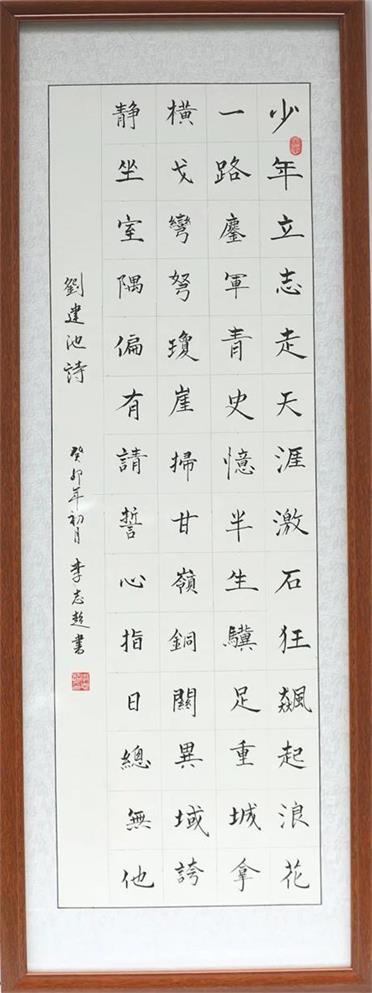 少年立志走天涯激石狂飆起浪花
一路鏖軍青史憶半生驥足重城拿
橫戈彎弩瓊崖掃甘嶺銅關異域誇
靜坐室隅偏有請誓心指日總無他
劉建池詩
癸卯年初月 李志超書